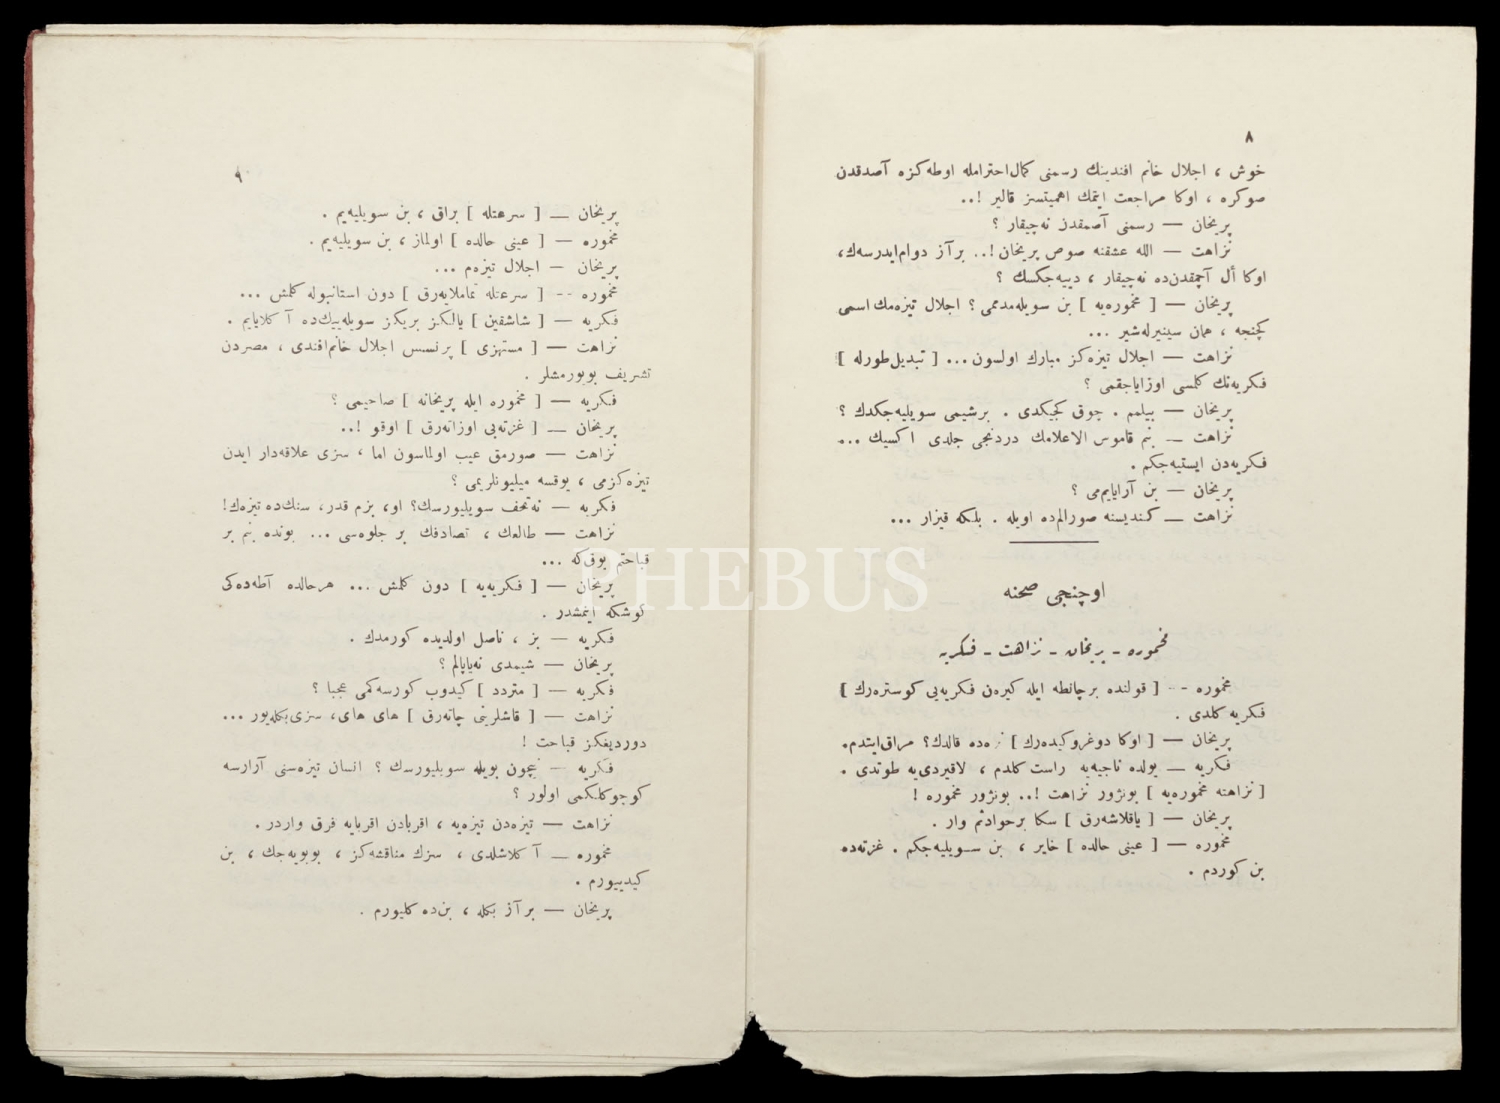 ٨
خوش ، اجلال خانم افندینك رسمنی كمال‌احترامله اوطه‌كزه آصدقدن
صوكره ، اوكا مراجعت ایتمك اهمیتسز قالیر !..
پریخان — رسمنی آصمقدن نه‌چیقار ؟
نزاهت — الله عشقنه صوص پریخان!.. برآز دوام‌ایدرسه‌ك،
اوكا أل آچمقدن‌ده نه‌چیقار ، دییه‌جكسك ؟
پریخان — [ مخموره‌یه ] بن سویله‌مدممی ؟ اجلال تیزه‌مك اسمی
كچنجه ، همان سینیرله‌شیر ...
نزاهت — اجلال تیزه‌كز مبارك اولسون... [ تبدیل‌طورله ]
فكریه‌نك كلمسی اوزایاجقمی ؟
پریخان — بیلمم . چوق كجیكدی . برشیمی سویلیه‌جكدك ؟
نزاهت — بنم قاموس الاعلامك دردنجی جلدی اكسیك ...
فكریه‌دن ایستیه‌جكم .
پریخان — بن آرایایم‌می ؟
نزاهت — كندیسنه صورالم‌ده اویله . بلكه قیزار ...
اوچنجی صحنه
مخموره - پریخان - نزاهت - فكریه
مخموره -- [ قولنده برچانطه ایله كیره‌ن فكریه‌یی كوستره‌رك ]
فكریه كلدی .
پریخان — [ اوكا دوغروكیده‌رك ] نره‌ده قالدك؟ مراق‌ایتدم.
فكریه — یولده ناجیه‌یه راست كلدم ، لاقیردی‌یه طوتدی .
[ نزاهته مخموره‌یه ] بونژور نزاهت !.. بونژور مخموره !
پریخان — [ یاقلاشه‌رق ] سكا برحوادثم وار .
مخموره — [ عینی حالده ] خایر ، بن سویلیه‌جكم . غزته‌ده
بن كوردم .
٩
پریخان — [ سرعتله ] براق ، بن سویلیه‌یم .
مخموره — [ عینی حالده ] اولماز ، بن سویلیه‌یم .
پریخان — اجلال تیزه‌م ...
مخموره -- [ سرعتله تماملایه‌رق ] دون استانبوله كلمش ...
فكریه — [ شاشقین ] یالكز بریكز سویله‌ییك‌ده آكلایایم .
نزاهت — [ مستهزی ] پرنسس اجلال خانم‌افندی ، مصردن
تشریف بویورمشلر .
فكریه — [ مخموره ایله پریخانه ] صاحیمی ؟
پریخان — [ غزته‌یی اوزاته‌رق ] اوقو !..
نزاهت — صورمق عیب اولماسون اما ، سزی علاقه‌دار ایدن
تیزه‌كزمی ، یوقسه میلیونلریمی ؟
فكریه — نه‌تحف سویلیورسك؟ او، بزم قدر، سنك‌ده تیزه‌ك!
نزاهت — طالعك ، تصادفك بر جلوه‌سی ... بونده بنم بر
قباحتم یوق‌كه ...
پریخان — [ فكریه‌یه ] دون كلمش ... هرحالده آطه‌ده‌كی
كوشكه اینمشدر .
فكریه — بز ، ناصل اولدیده كورمدك .
پریخان — شیمدی نه‌یاپالم ؟
فكریه — [ متردد ] كیدوب كورسه‌كمی عجبا ؟
نزاهت — [ قاشلرینی چاته‌رق ] های های، سزی‌بكله‌یور ...
دوردیغكز قباحت !
فكریه — نیچون بویله سویلیورسك ؟ انسان تیزه‌سنی آرارسه
كوچوكلكمی اولور ؟
نزاهت — تیزه‌دن تیزه‌یه ، اقربادن اقربایه فرق واردر.
مخموره — آكلاشلدی ، سزك مناقشه‌كز ، بویویه‌جك ، بن
كیدییورم .
پریخان — برآز بكله ، بن‌ده كلیورم .
PHEBUS